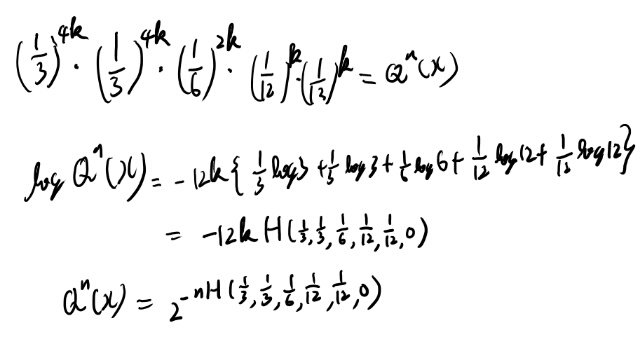 (1/3)^{4k} · (1/3)^{4k} · (1/6)^{2k} · (1/12)^k · (1/12)^k = Q^n(x)
log Q^n(x) = -12k { 1/3 log3 + 1/3 log3 + 1/6 log6 + 1/12 log12 + 1/12 log12 }
= -12k H(1/3, 1/3, 1/6, 1/12, 1/12, 0)
Q^n(x) = 2^{-nH(1/3, 1/3, 1/6, 1/12, 1/12, 0)}